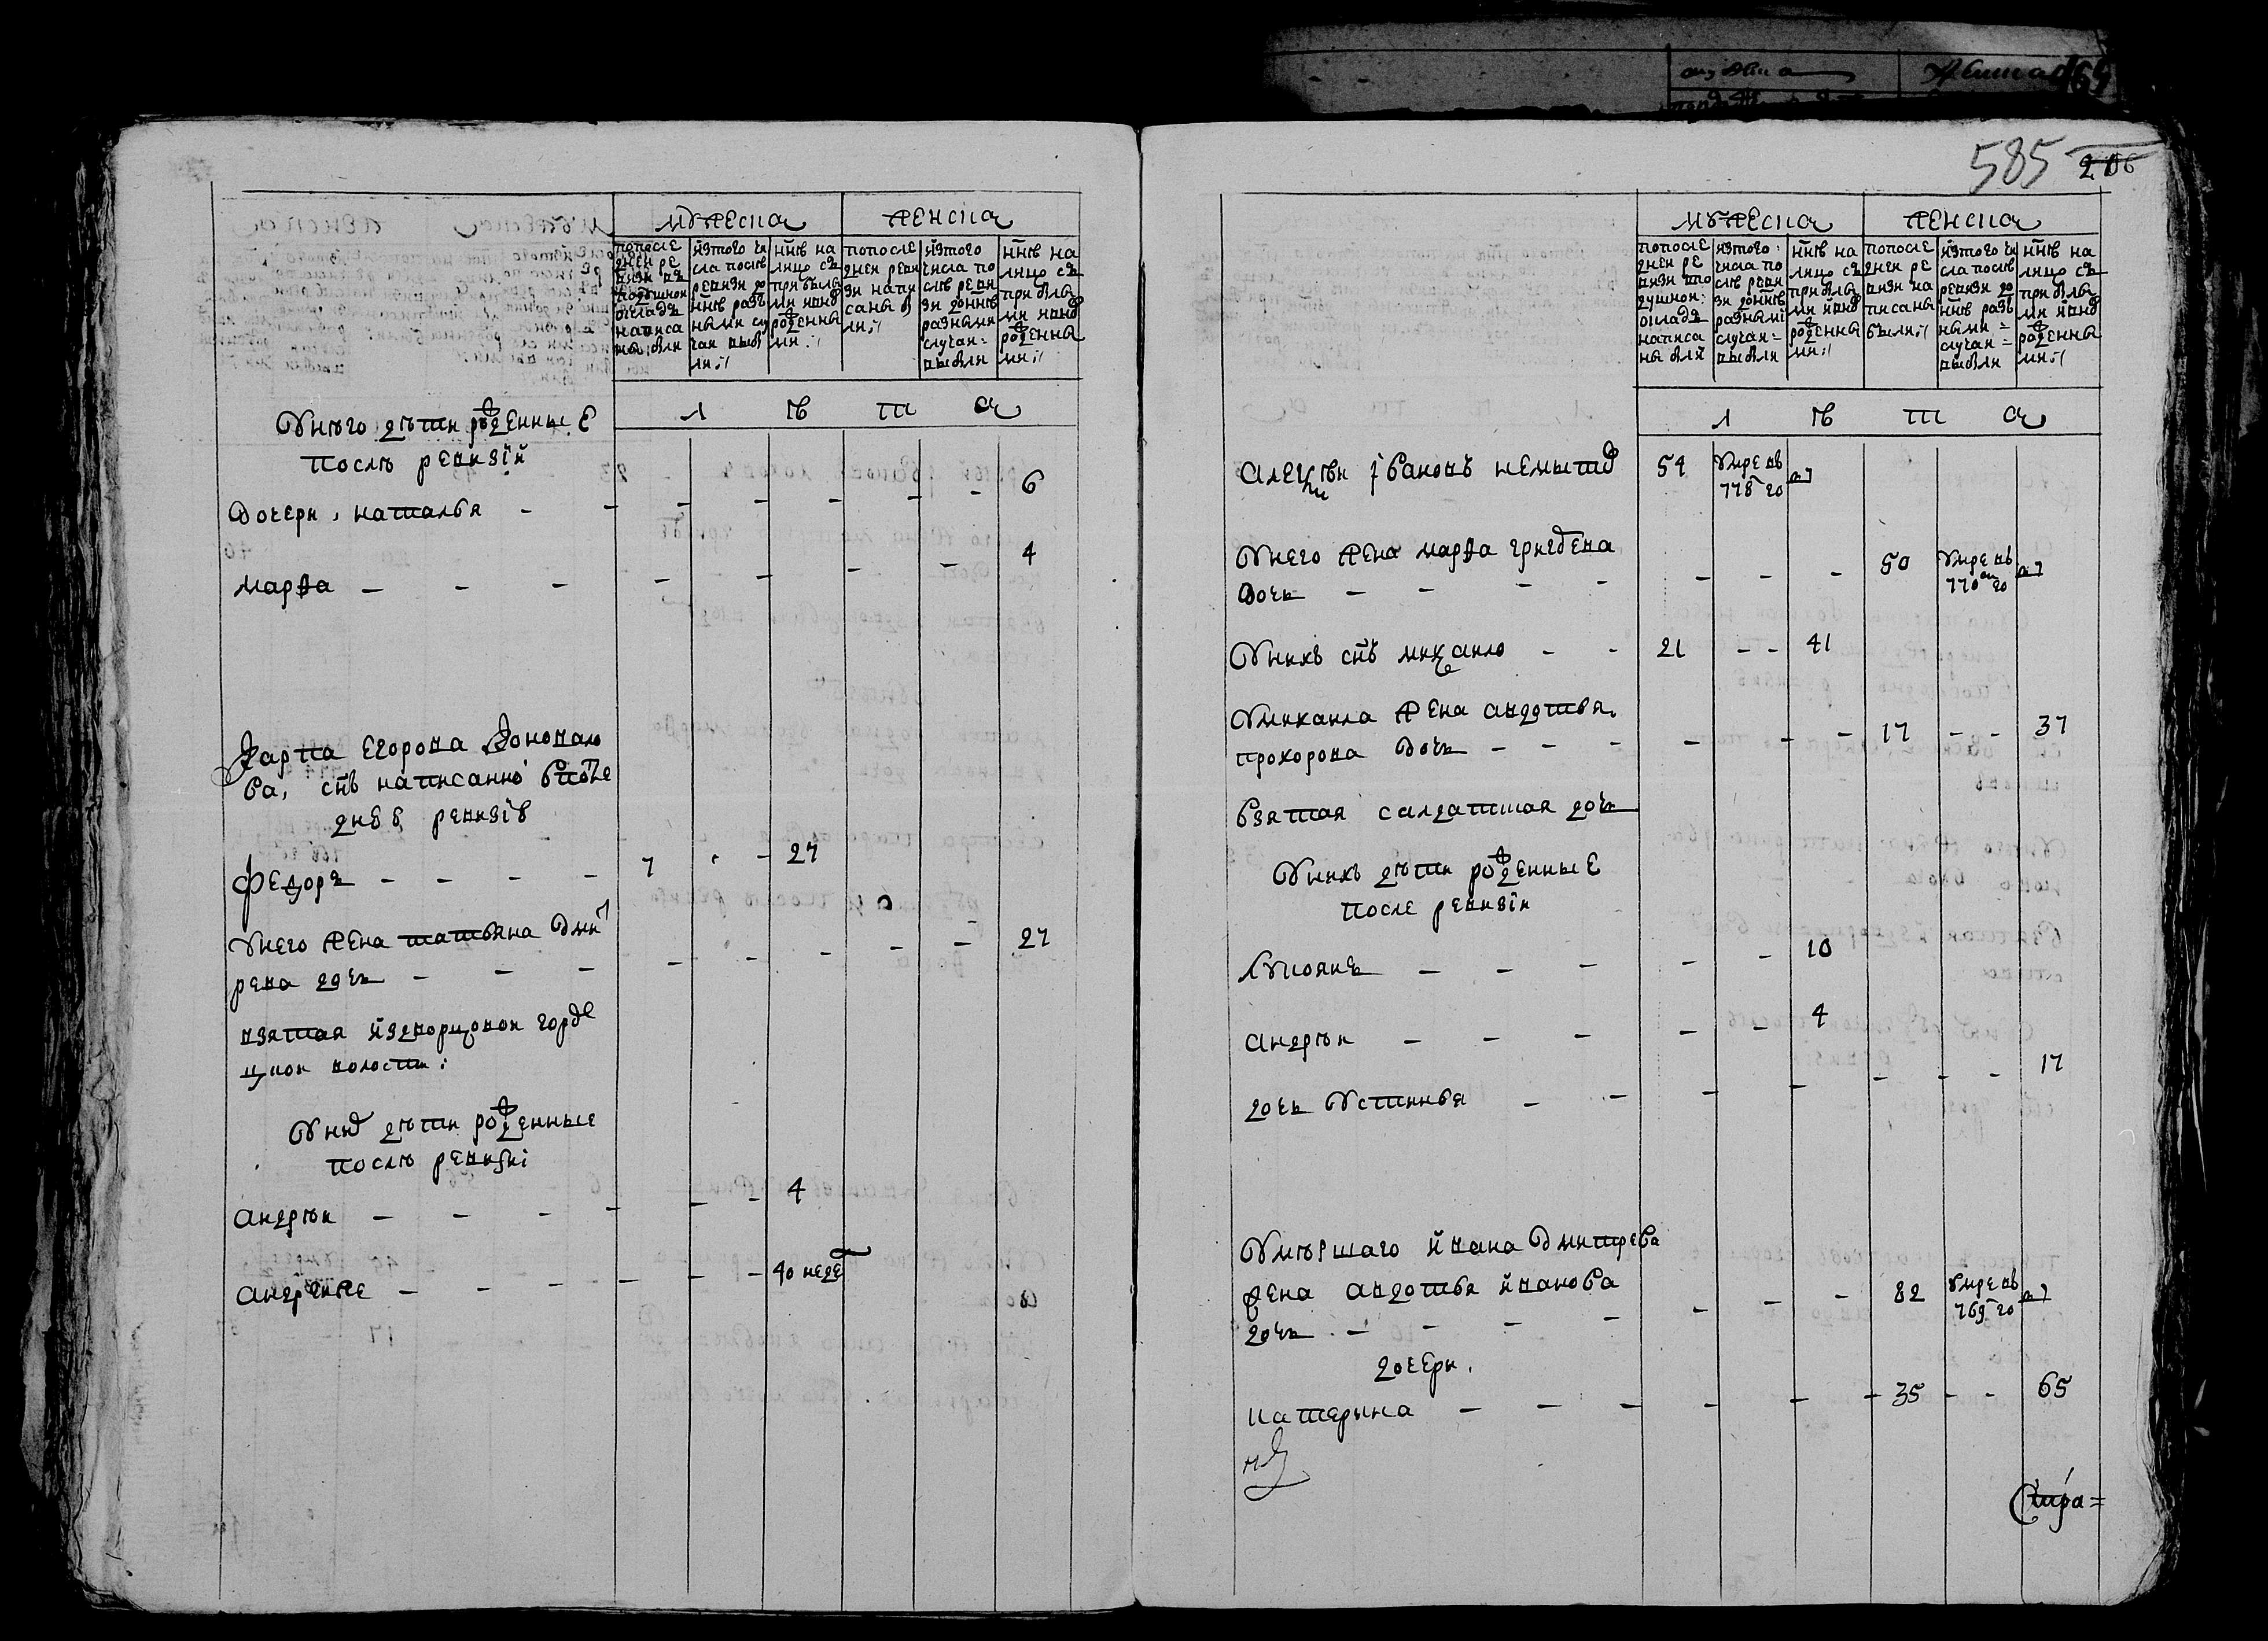 585 206
мужеска женска
попосле
дней ре
визи въ
подушной
окладъ
написа
ны были
изтого чи
сла послѣ
ревизи до
ннѣ разъ
ными слу
чаи выбы
ли
ннѣ на
лицо съ
прибылы
ми иново
рожденны
ми
попосле
дней реви
зи напи
саны бы
ли
изтого
числа по
слѣ реви
зи доннѣ
разными
случаи
выбыли
ннѣ на
лицо съ
прибылы
ми иново
рожденны
ми
л ѣ т а
Унего дѣти рожденные
послѣ ревизiи
Дочери, наталья - - - - - - 6
марфа - - - - - - - 4
Карпа Егорова Коновало
ва, снъ написанно впосле
дней ревизiи
Федоръ - - - - 7 - - 27
Унего жена татьяна Дмит
рева дочь - - - - - - - - 27
взятая издворцовой горде
цкой волости:
Уних дѣти рожденные
послѣ ревизiи
андрѣи - - - - - - 4
андрѣи же - - - - - - 40 неде
мужеска женска
попосле
дней ре
визи впо
душной
окладъ
написа
ны были
изтого
числа по
слѣ реви
зи доннѣ
разными
случаи
выбыли
ннѣ на
лицо съ
прибылы
ми иново
рожденны
ми
попосле
дней ре
визи на
писаны
были
изтого чи
сла послѣ
ревизи до
ннѣ разъ
ными
случаи
выбыли
ннѣ на
лицо съ
прибылы
ми иново
рожденны
ми
л ѣ т а
Алексѣи iвановъ 54 Умре въ
778 го
Унего жена марфа григорева
Дочь - - - - - - - 50 Умре въ
770 го
Унихъ снъ михаило - - 21 - - 41
Умихаила жена авдотья
прохорова дочь - - - - - - 17 - - 37
взятая салдатская дочь
Унихъ дѣти рожденные
после ревизiи
Лукоянъ - - - - - 10
андрѣи - - - - - 4
дочь Устинья - - - - - - - 17
Умѣршаго ивана Дмитрева
жена авдотья иванова
дочь - - - - - - - 82 Умре въ
769 го
дочери.
катерина - - - - - - 35 - - 65
Стра=